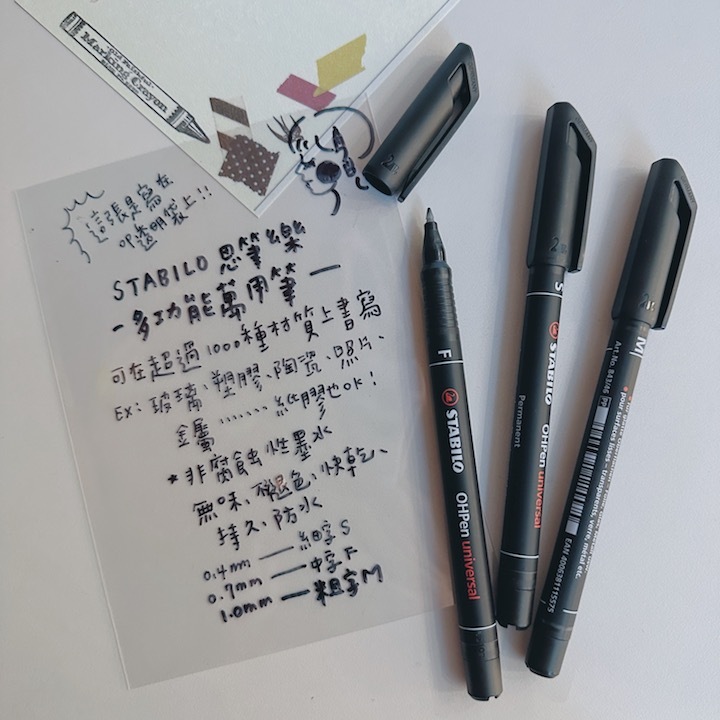 Old Faithful
Marking Crayon
這張是寫在
透明袋上!!
STABILO 思筆樂
-多功能萬用筆—
可在超過1000種材質上書寫
EX: 玻璃、塑膠、陶瓷、照片、
金屬.......紙膠也OK!
*非腐蝕性墨水
無味、不褪色、快乾、
持久、防水
0.4mm — 細字 S
0.7mm — 中字 F
1.0mm — 粗字 M
F
STABILO
OHPen universal
S
STABILO
OHPen universal
Permanent
M
Art. No. 843/46
pour surfaces lisses – transparents, verre, métal etc.
EAN 4006381115575